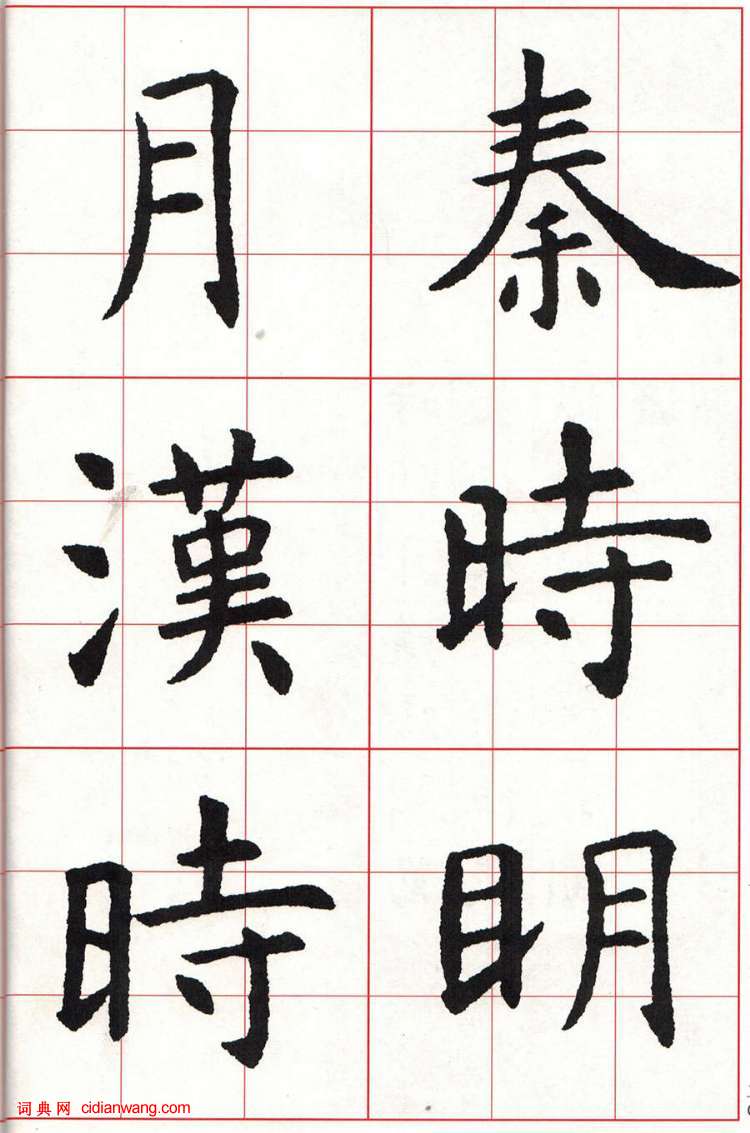 秦時明
月漢時
词典网 cidianwang.com